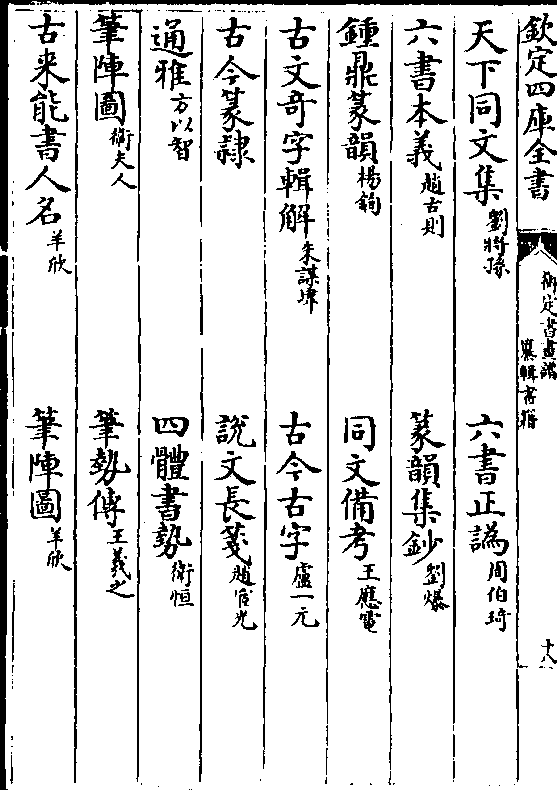 欽定四庫全書
御定書畫譜
纂輯書籍
十八
天下同文集 劉將孫
六書正譌 周伯琦
六書本義 趙古則
篆韻集鈔 劉爆
鍾鼎篆韻 楊鉤
同文備考 王應電
古文奇字輯解 朱謀㙔
古今古字 盧一元
古今篆隷
說文長箋 趙宧光
通雅 方以智
四體書勢 衛恒
筆陣圖 衛夫人
筆勢傳 王羲之
古来能書人名 羊欣
筆陣圖 羊欣